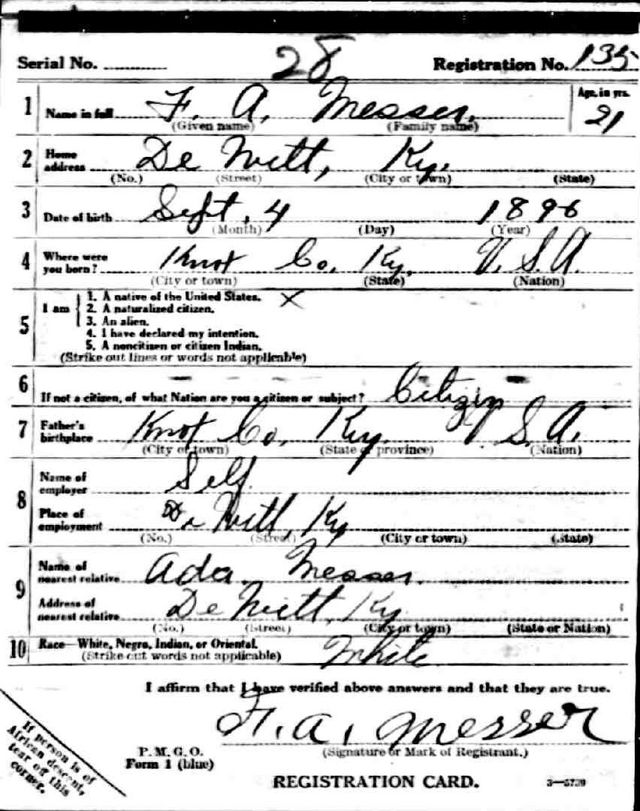 Serial No. 28 Registration No. 135
1 Name in full F. A. Messer. Age, in yrs. 21
(Given name) (Family name)
2 Home address De Witt, Ky.
(No.) (Street) (City or town) (State)
3 Date of birth Sept. 4 1896
(Month) (Day) (Year)
4 Where were you born? Knot Co. Ky. U. S. A.
(City or town) (State) (Nation)
5 I am
1. A native of the United States. X
2. A naturalized citizen.
3. An alien.
4. I have declared my intention.
5. A noncitizen or citizen Indian.
(Strike out lines or words not applicable)
6 If not a citizen, of what Nation are you a citizen or subject? Citizin
7 Father's birthplace Knot Co. Ky. U. S. A.
(City or town) (State or province) (Nation)
8 Name of employer Self
Place of employment De Witt, Ky
(No.) (Street) (City or town) (State)
9 Name of nearest relative Ada Messer.
Address of nearest relative De Witt, Ky
(No.) (Street) (City or town) (State or Nation)
10 Race—White, Negro, Indian, or Oriental. White
(Strike out words not applicable)
I affirm that I have verified above answers and that they are true.
F. A. Messer
(Signature or Mark of Registrant.)
P. M. G. O.
Form 1 (blue)
REGISTRATION CARD. 3—5739
If person is of
African descent,
tear off this
corner.